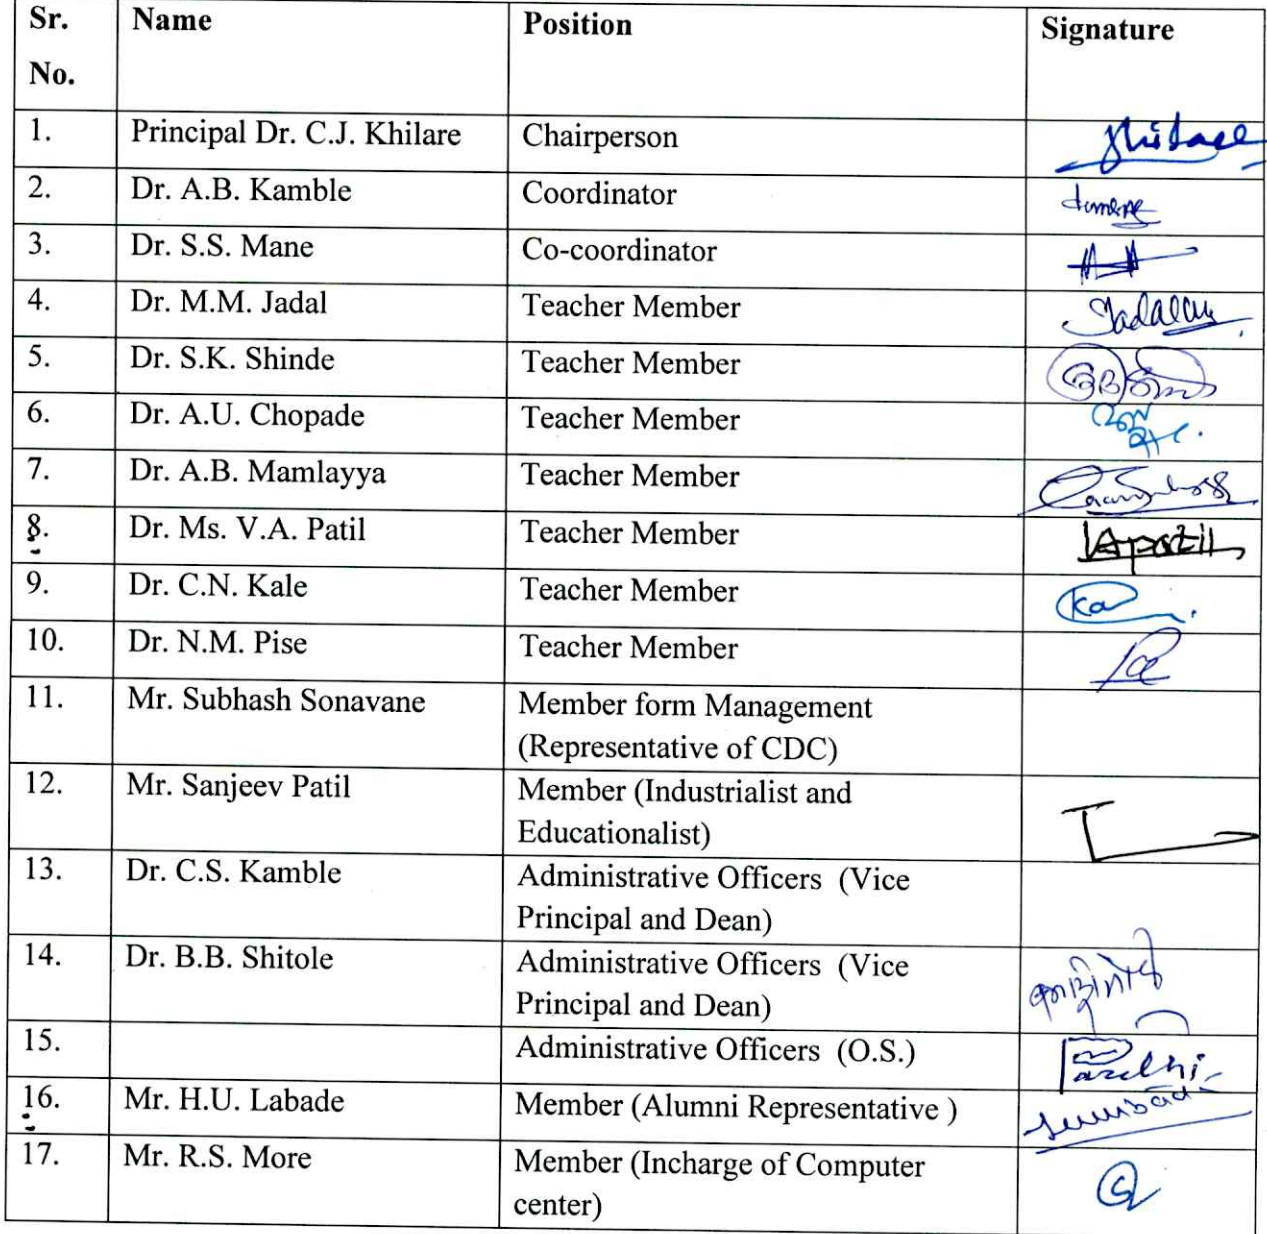 Sr. No. Name Position Signature
1. Principal Dr. C.J. Khilare Chairperson
2. Dr. A.B. Kamble Coordinator
3. Dr. S.S. Mane Co-coordinator
4. Dr. M.M. Jadal Teacher Member
5. Dr. S.K. Shinde Teacher Member
6. Dr. A.U. Chopade Teacher Member
7. Dr. A.B. Mamlayya Teacher Member
8. Dr. Ms. V.A. Patil Teacher Member VApatil
9. Dr. C.N. Kale Teacher Member
10. Dr. N.M. Pise Teacher Member
11. Mr. Subhash Sonavane Member form Management
(Representative of CDC)
12. Mr. Sanjeev Patil Member (Industrialist and
Educationalist)
13. Dr. C.S. Kamble Administrative Officers (Vice
Principal and Dean)
14. Dr. B.B. Shitole Administrative Officers (Vice
Principal and Dean)
15. Administrative Officers (O.S.)
16. Mr. H.U. Labade Member (Alumni Representative )
17. Mr. R.S. More Member (Incharge of Computer
center)